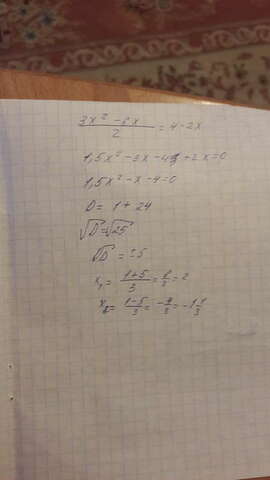 3x² - 6x / 2 = 4 - 2x
1,5x² - 3x - 4 + 2x = 0
1,5x² - x - 4 = 0
D = 1 + 24
√D = √25
√D = ±5
x₁ = 1+5 / 3 = 6/3 = 2
x₂ = 1-5 / 3 = -4/3 = -1 1/3